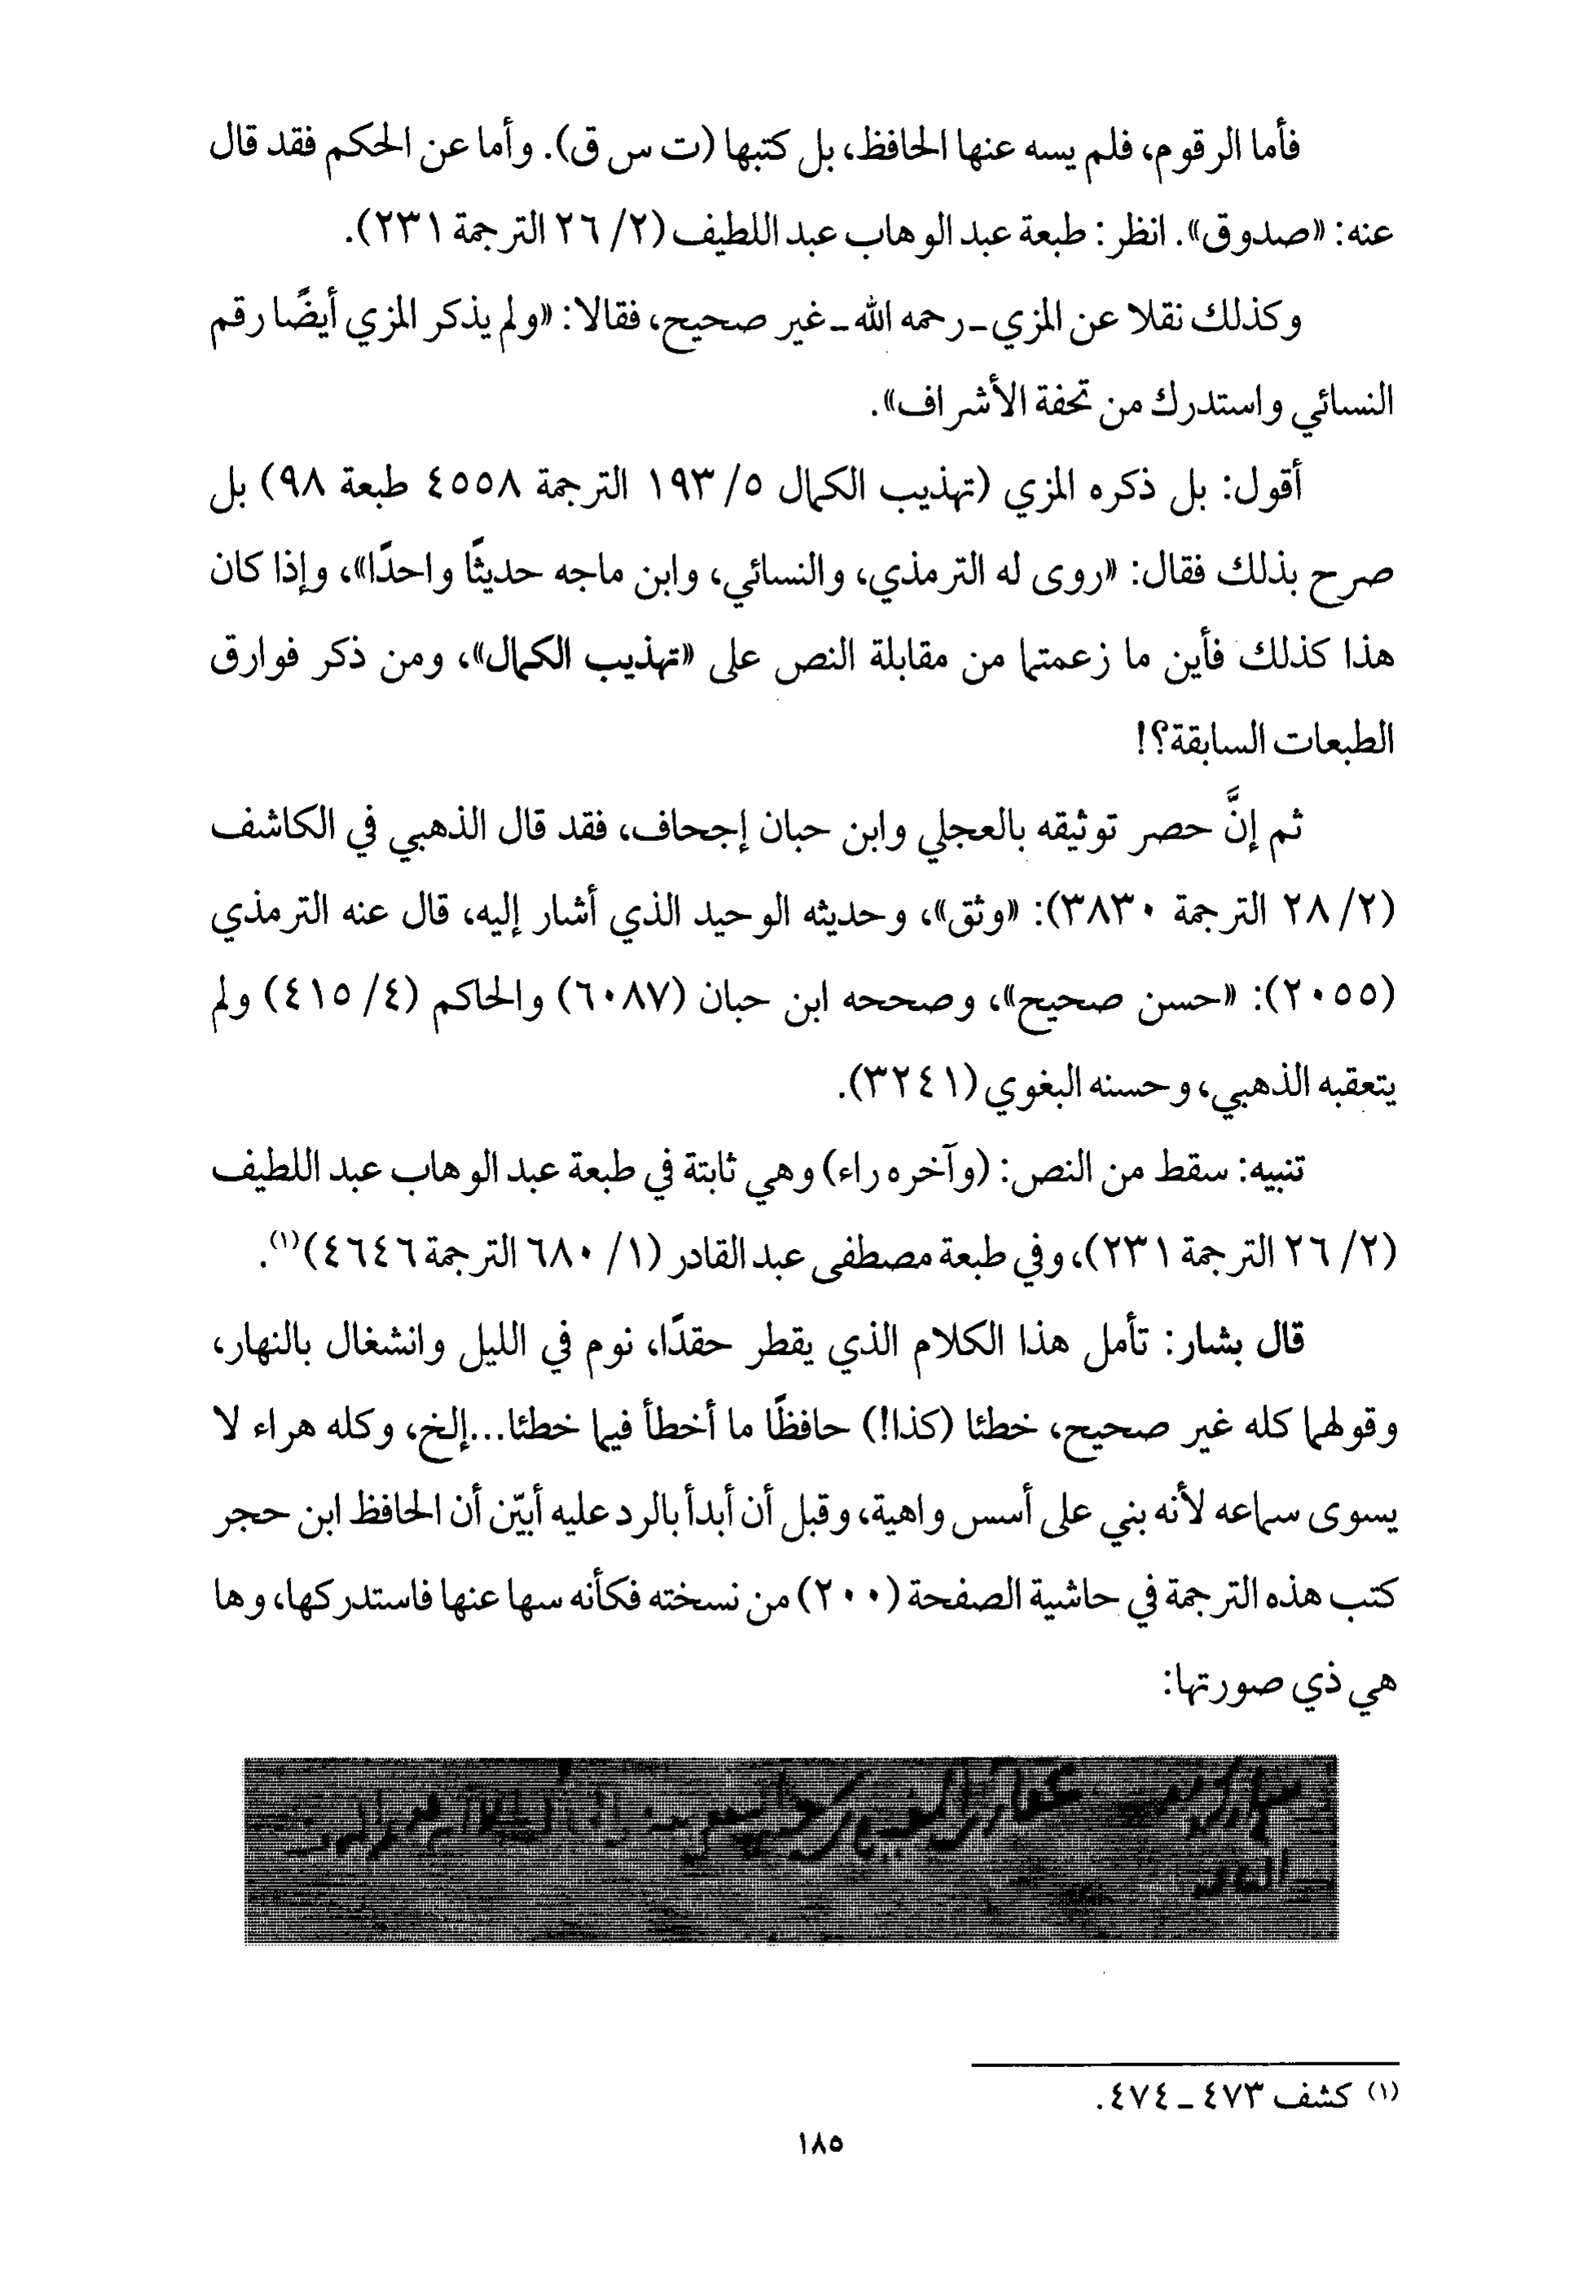 فأما الرقوم، فلم يسه عنها الحافظ، بل كتبها (ت س ق). وأما عن الحكم فقد قال
عنه: «صدوق». انظر: طبعة عبد الوهاب عبد اللطيف (٢/ ٢٦ الترجمة ٢٣١).
وكذلك نقلا عن المزي ـ رحمه الله ـ غير صحيح، فقالا: «ولم يذكر المزي أيضًا رقم
النسائي واستدرك من تحفة الأشراف».
أقول: بل ذكره المزي (تهذيب الكمال ٥/ ١٩٣ الترجمة ٤٥٥٨ طبعة ٩٨) بل
صرح بذلك فقال: «روى له الترمذي، والنسائي، وابن ماجه حديثًا واحدًا»، وإذا كان
هذا كذلك فأين ما زعمتما من مقابلة النص على «تهذيب الكمال»، ومن ذكر فوارق
الطبعات السابقة؟!
ثم إنَّ حصر توثيقه بالعجلي وابن حبان إجحاف، فقد قال الذهبي في الكاشف
(٢/ ٢٨ الترجمة ٣٨٣٠): «وثق»، وحديثه الوحيد الذي أشار إليه، قال عنه الترمذي
(٢٠٥٥): «حسن صحيح»، وصححه ابن حبان (٦٠٨٧) والحاكم (٤/ ٤١٥) ولم
يتعقبه الذهبي، وحسنه البغوي (٣٢٤١).
تنبيه: سقط من النص: (وآخره راء) وهي ثابتة في طبعة عبد الوهاب عبد اللطيف
(٢/ ٢٦ الترجمة ٢٣١)، وفي طبعة مصطفى عبد القادر (١/ ٦٨٠ الترجمة ٤٦٤٦)(١).
قال بشار: تأمل هذا الكلام الذي يقطر حقدًا، نوم في الليل وانشغال بالنهار،
وقولهما كله غير صحيح، خطئا (كذا!) حافظًا ما أخطأ فيما خطئا...إلخ، وكله هراء لا
يسوى سماعه لأنه بني على أسس واهية، وقبل أن أبدأ بالرد عليه أبيّن أن الحافظ ابن حجر
كتب هذه الترجمة في حاشية الصفحة (٢٠٠) من نسخته فكأنه سها عنها فاستدركها، وها
هي ذي صورتها:
(١) كشف ٤٧٣ ـ ٤٧٤.
١٨٥